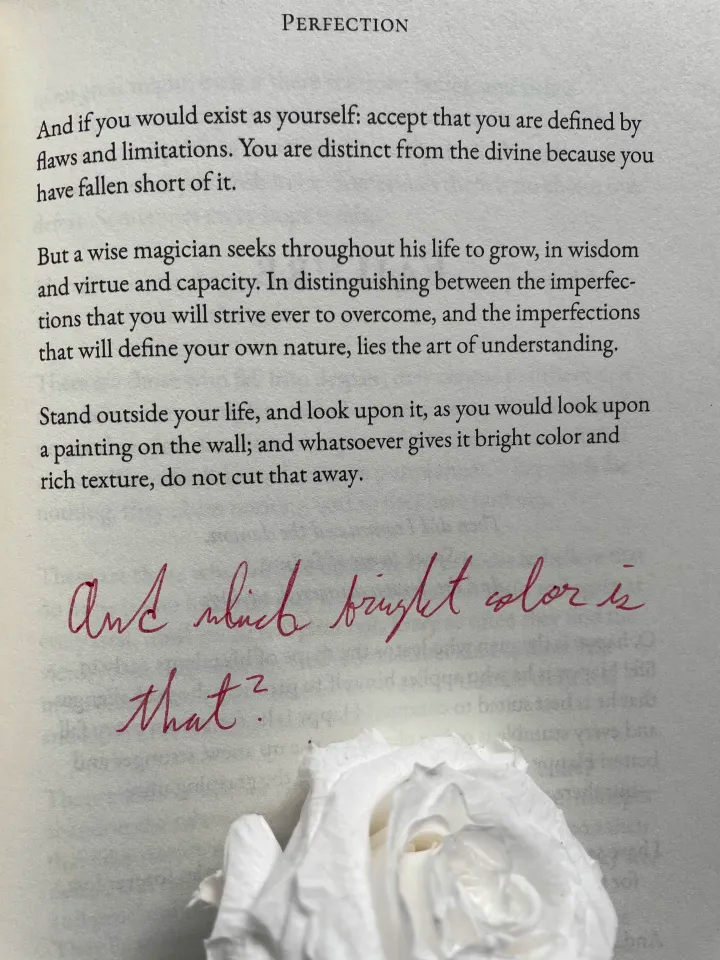 PERFECTION
And if you would exist as yourself: accept that you are defined by
flaws and limitations. You are distinct from the divine because you
have fallen short of it.
But a wise magician seeks throughout his life to grow, in wisdom
and virtue and capacity. In distinguishing between the imperfec-
tions that you will strive ever to overcome, and the imperfections
that will define your own nature, lies the art of understanding.
Stand outside your life, and look upon it, as you would look upon
a painting on the wall; and whatsoever gives it bright color and
rich texture, do not cut that away.
And which bright color is
that?